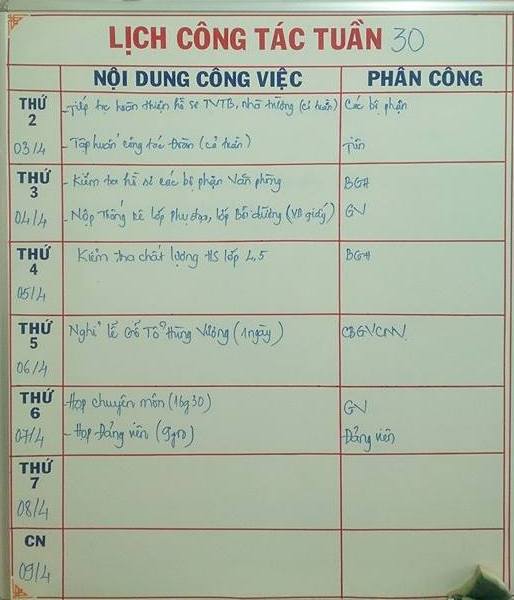 LỊCH CÔNG TÁC TUẦN 30
NỘI DUNG CÔNG VIỆC PHÂN CÔNG
THỨ 2
03/4
- Tiếp tục hoàn thiện hồ sơ TVTB, nhà trường (cả tuần) Các bộ phận
- Tập huấn công tác Đoàn (cả tuần)
THỨ 3
04/4
- Kiểm tra hồ sơ các bộ phận Văn phòng BGH
- Nộp Thống kê lớp Phụ đạo, lớp Bồi dưỡng (VB giấy) GV
THỨ 4
05/4
Kiểm tra chất lượng HS lớp 4,5 BGH
THỨ 5
06/4
Nghỉ lễ Giỗ Tổ Hùng Vương (1 ngày) CBGVCNV
THỨ 6
07/4
- Họp chuyên môn (16g30) GV
- Họp Đảng viên (9g00) Đảng viên
THỨ 7
08/4
CN
09/4